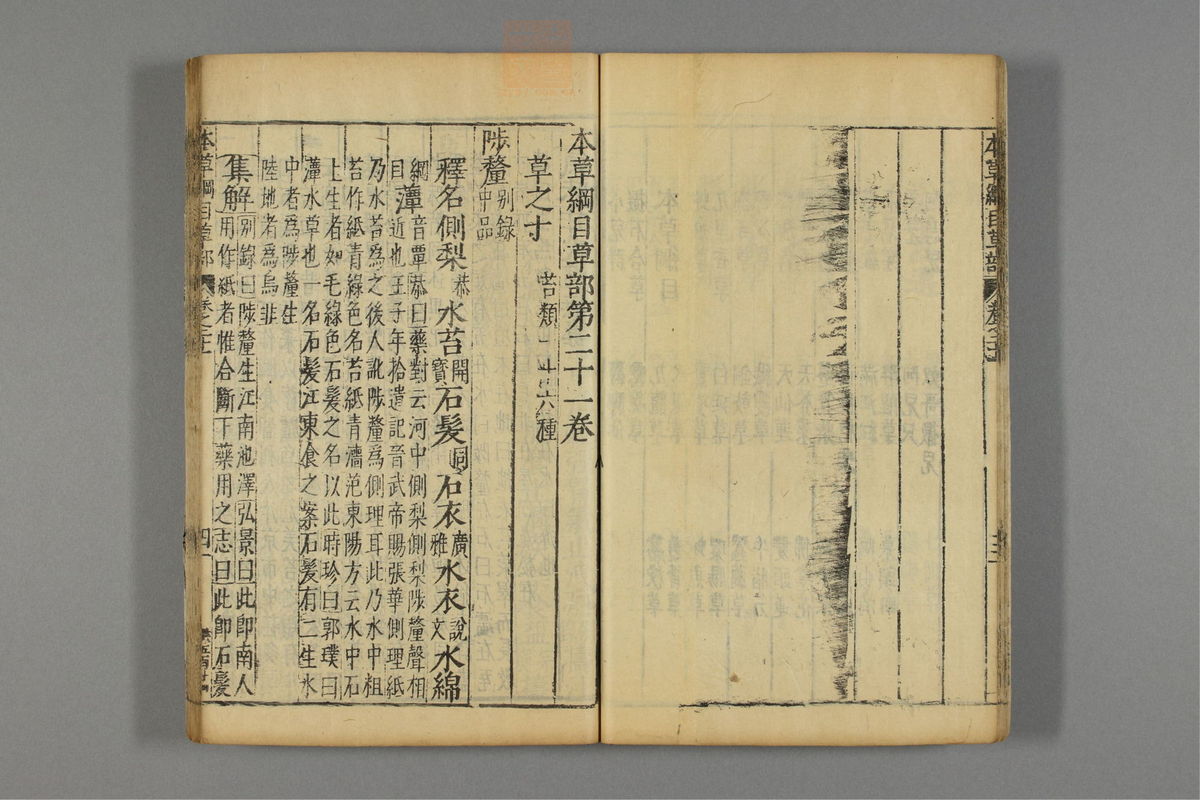 本草綱目草部
本草綱目草部第二十一卷
草之十 苔類一十六種
陟釐 別錄中品
釋名側梨恭水苔開寶石髮同石衣廣雅水衣說文水綿
綱目藫音覃恭曰藥對云河中側梨側梨陟釐聲相
近也王子年拾遺記晉武帝賜張華側理紙
乃水苔爲之後人訛陟釐爲側理耳此乃水中粗
苔作紙青綠色名苔紙青濇范東陽方云水中石
上生者如毛綠色石髮之名以此時珍曰郭璞曰
藫水草也一名石髮江東食之案石髮有二生水
中者爲陟釐生
陸地者爲烏韭
集解別錄曰陟釐生江南池澤弘景曰此卽南人
用作紙者惟合斷下藥用之志曰此卽石髮
本草綱目草部